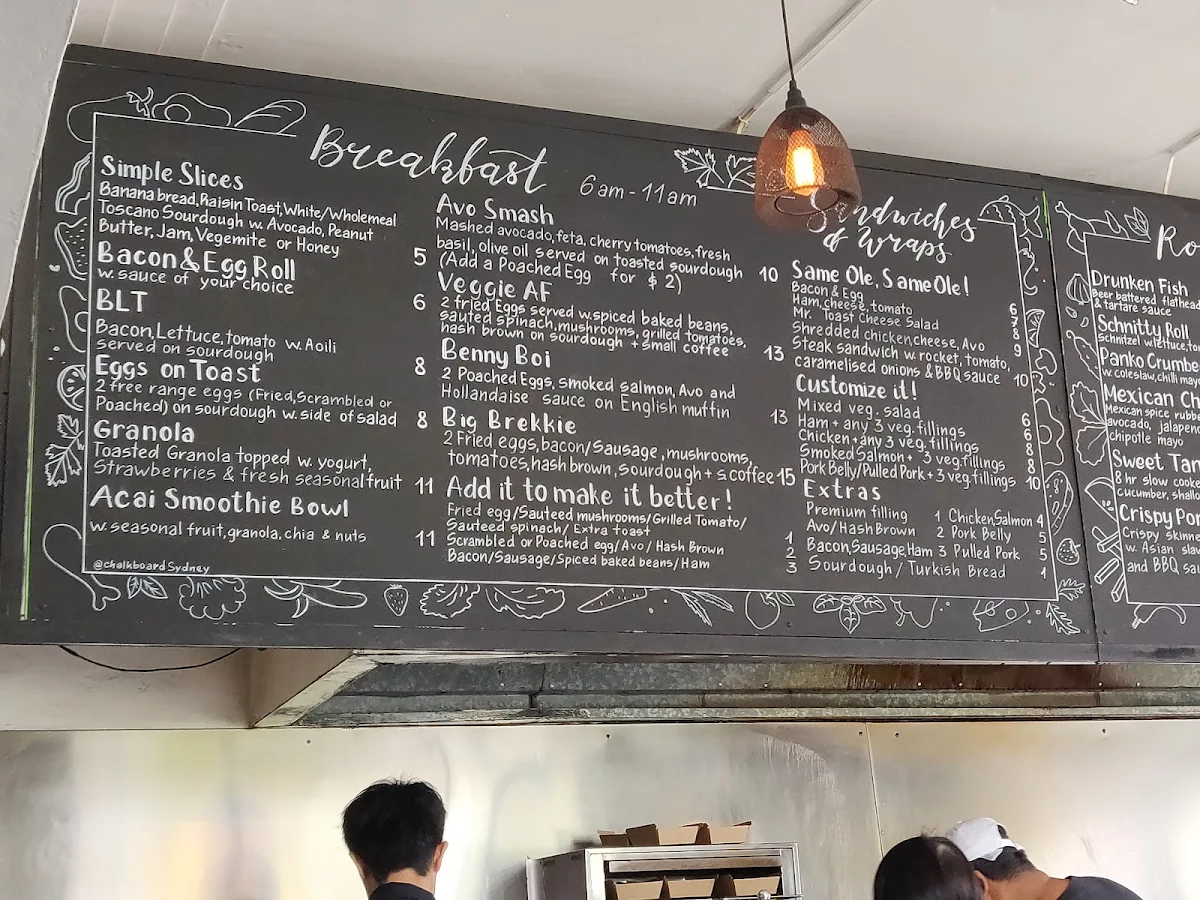 Breakfast 6am - 11am
Simple Slices
Banana bread, Raisin Toast, White/Wholemeal
Toscano Sourdough w. Avocado, Peanut
Butter, Jam, Vegemite or Honey 5
Bacon & Egg Roll
w. sauce of your choice 6
BLT
Bacon, Lettuce, tomato w. Aoili
served on sourdough 8
Eggs on Toast
2 free range eggs (Fried, Scrambled or
Poached) on sourdough w. side of salad 8
Granola
Toasted Granola topped w. yogurt,
Strawberries & fresh seasonal fruit 11
Acai Smoothie Bowl
w. seasonal fruit, granola, chia & nuts 11
@chalkboardSydney
Avo Smash
Mashed avocado, feta, cherry tomatoes, fresh
basil, olive oil served on toasted sourdough 10
(Add a Poached Egg for $2)
Veggie AF
2 fried Eggs served w. spiced baked beans,
sauted spinach, mushrooms, grilled tomatoes,
hash brown on sourdough + small coffee 13
Benny Boi
2 Poached Eggs, smoked salmon, Avo and
Hollandaise sauce on English muffin 13
Big Brekkie
2 Fried eggs, bacon/Sausage, mushrooms,
tomatoes, hash brown, sourdough + s coffee 15
Add it to make it better!
Fried egg/Sauteed mushrooms/Grilled Tomato/
Sauteed spinach/ Extra toast 1
Scrambled or Poached egg/Avo/ Hash Brown 2
Bacon/Sausage/Spiced baked beans/Ham 3
& Wraps
Same Ole, Same Ole!
Bacon & Egg 6
Ham, cheese, tomato 7
Mr. Toast Cheese Salad 8
Shredded chicken, cheese, Avo 9
Steak sandwich w. rocket, tomato,
caramelised onions & BBQ sauce 10
Customize it!
Mixed veg. salad 6
Ham + any 3 veg. fillings 6
Chicken + any 3 veg. fillings 8
Smoked Salmon + 3 veg. fillings 8
Pork Belly/Pulled Pork + 3 veg. fillings 10
Extras
Premium filling 1 Chicken, Salmon 4
Avo/Hash Brown 2 Pork Belly 5
Bacon, Sausage, Ham 3 Pulled Pork 5
Sourdough / Turkish Bread 1
Drunken Fish
Beer battered flathead
& tartare sauce
Schnitty Roll
Schnitzel w. lettuce,
Panko
w. coleslaw, chilli
Mexican
Mexican spice
avocado,
chipotle mayo
Sweet
8 hr slow
cucumber,
Crispy
Crispy
w. Asian
and BBQ